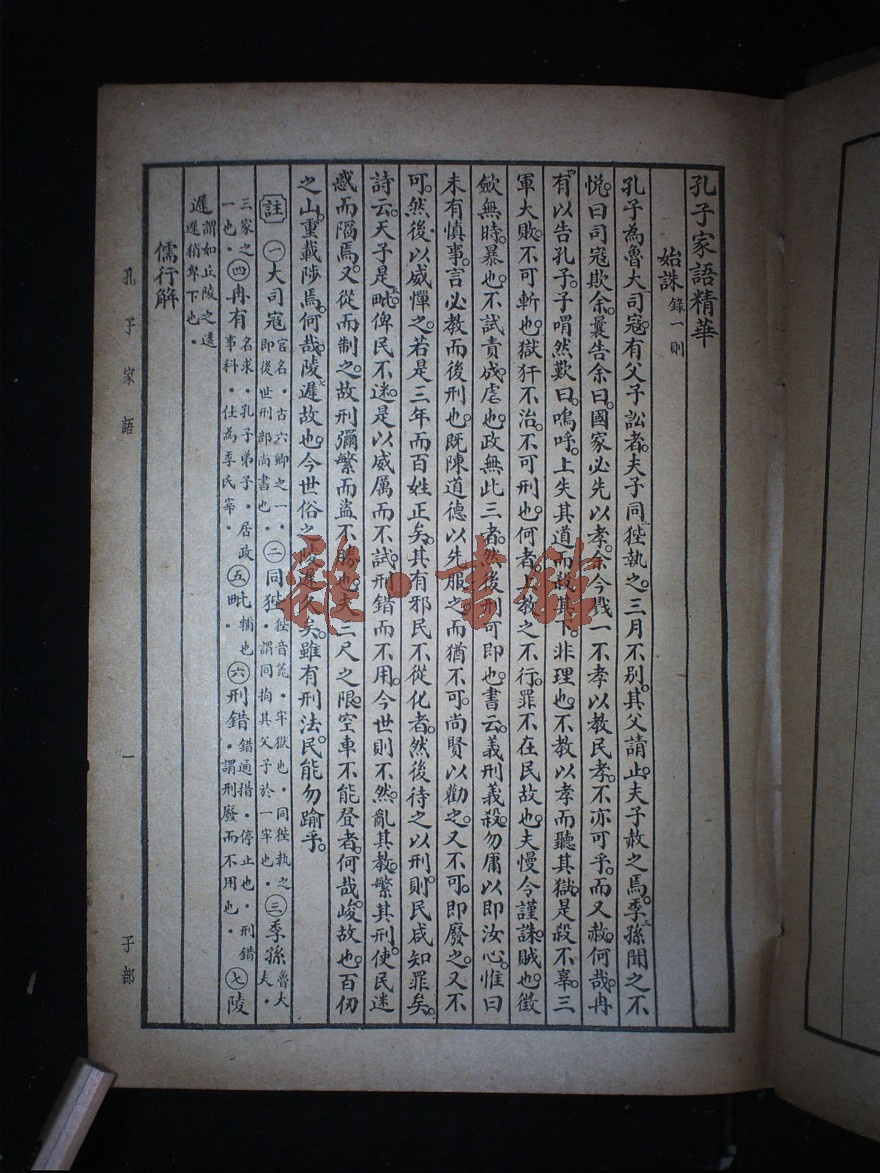 孔子家語精華
始誅 錄一則
孔子為魯大司寇。有父子訟者。夫子同狴執之。三月不別。其父請止。夫子赦之焉。季孫聞之不
悅。曰司寇欺余。曩告余曰。國家必先以孝。余今戮一不孝以教民孝。不亦可乎。而又赦。何哉。冉
有以告孔子。子喟然歎曰。嗚呼。上失其道而殺其下。非理也。不教以孝而聽其獄。是殺不辜。三
軍大敗。不可斬也。獄犴不治。不可刑也。何者。上教之不行。罪不在民故也。夫慢令謹誅。賊也。徵
斂無時。暴也。不試責成。虐也。政無此三者。然後刑可即也。書云。義刑義殺。勿庸以即汝心。惟曰
未有慎事。言必教而後刑也。既陳道德以先服之。而猶不可。尚賢以勸之。又不可。即廢之。又不
可。然後以威憚之。若是三年而百姓正矣。其有邪民不從化者。然後待之以刑。則民咸知罪矣。
詩云。天子是毗。俾民不迷。是以威厲而不試。刑錯而不用。今世則不然。亂其教。繁其刑。使民迷
惑而陷焉。又從而制之。故刑彌繁而盜不勝也。夫三尺之限。空車不能登者。何哉。峻故也。百仞
之山。重載陟焉。何哉。陵遲故也。今世俗之陵遲久矣。雖有刑法。民能勿踰乎。
註 ㊀大司寇 官名。古六卿之一。即後世刑部尚書也。㊁同狴 狴音篦。牢獄也。同狴執之。謂同拘其父子於一牢也。㊂季孫 魯大夫。
三家之一也。㊃冉有 名求。孔子弟子。居政事科。仕為季氏宰。㊄毗 輔也。㊅刑錯 錯通措。停止也。刑錯。謂刑廢而不用也。㊆陵
遲 謂如丘陵之逶遲稍卑下也。
儒行解
孔子家語 一 子部
雜·書館